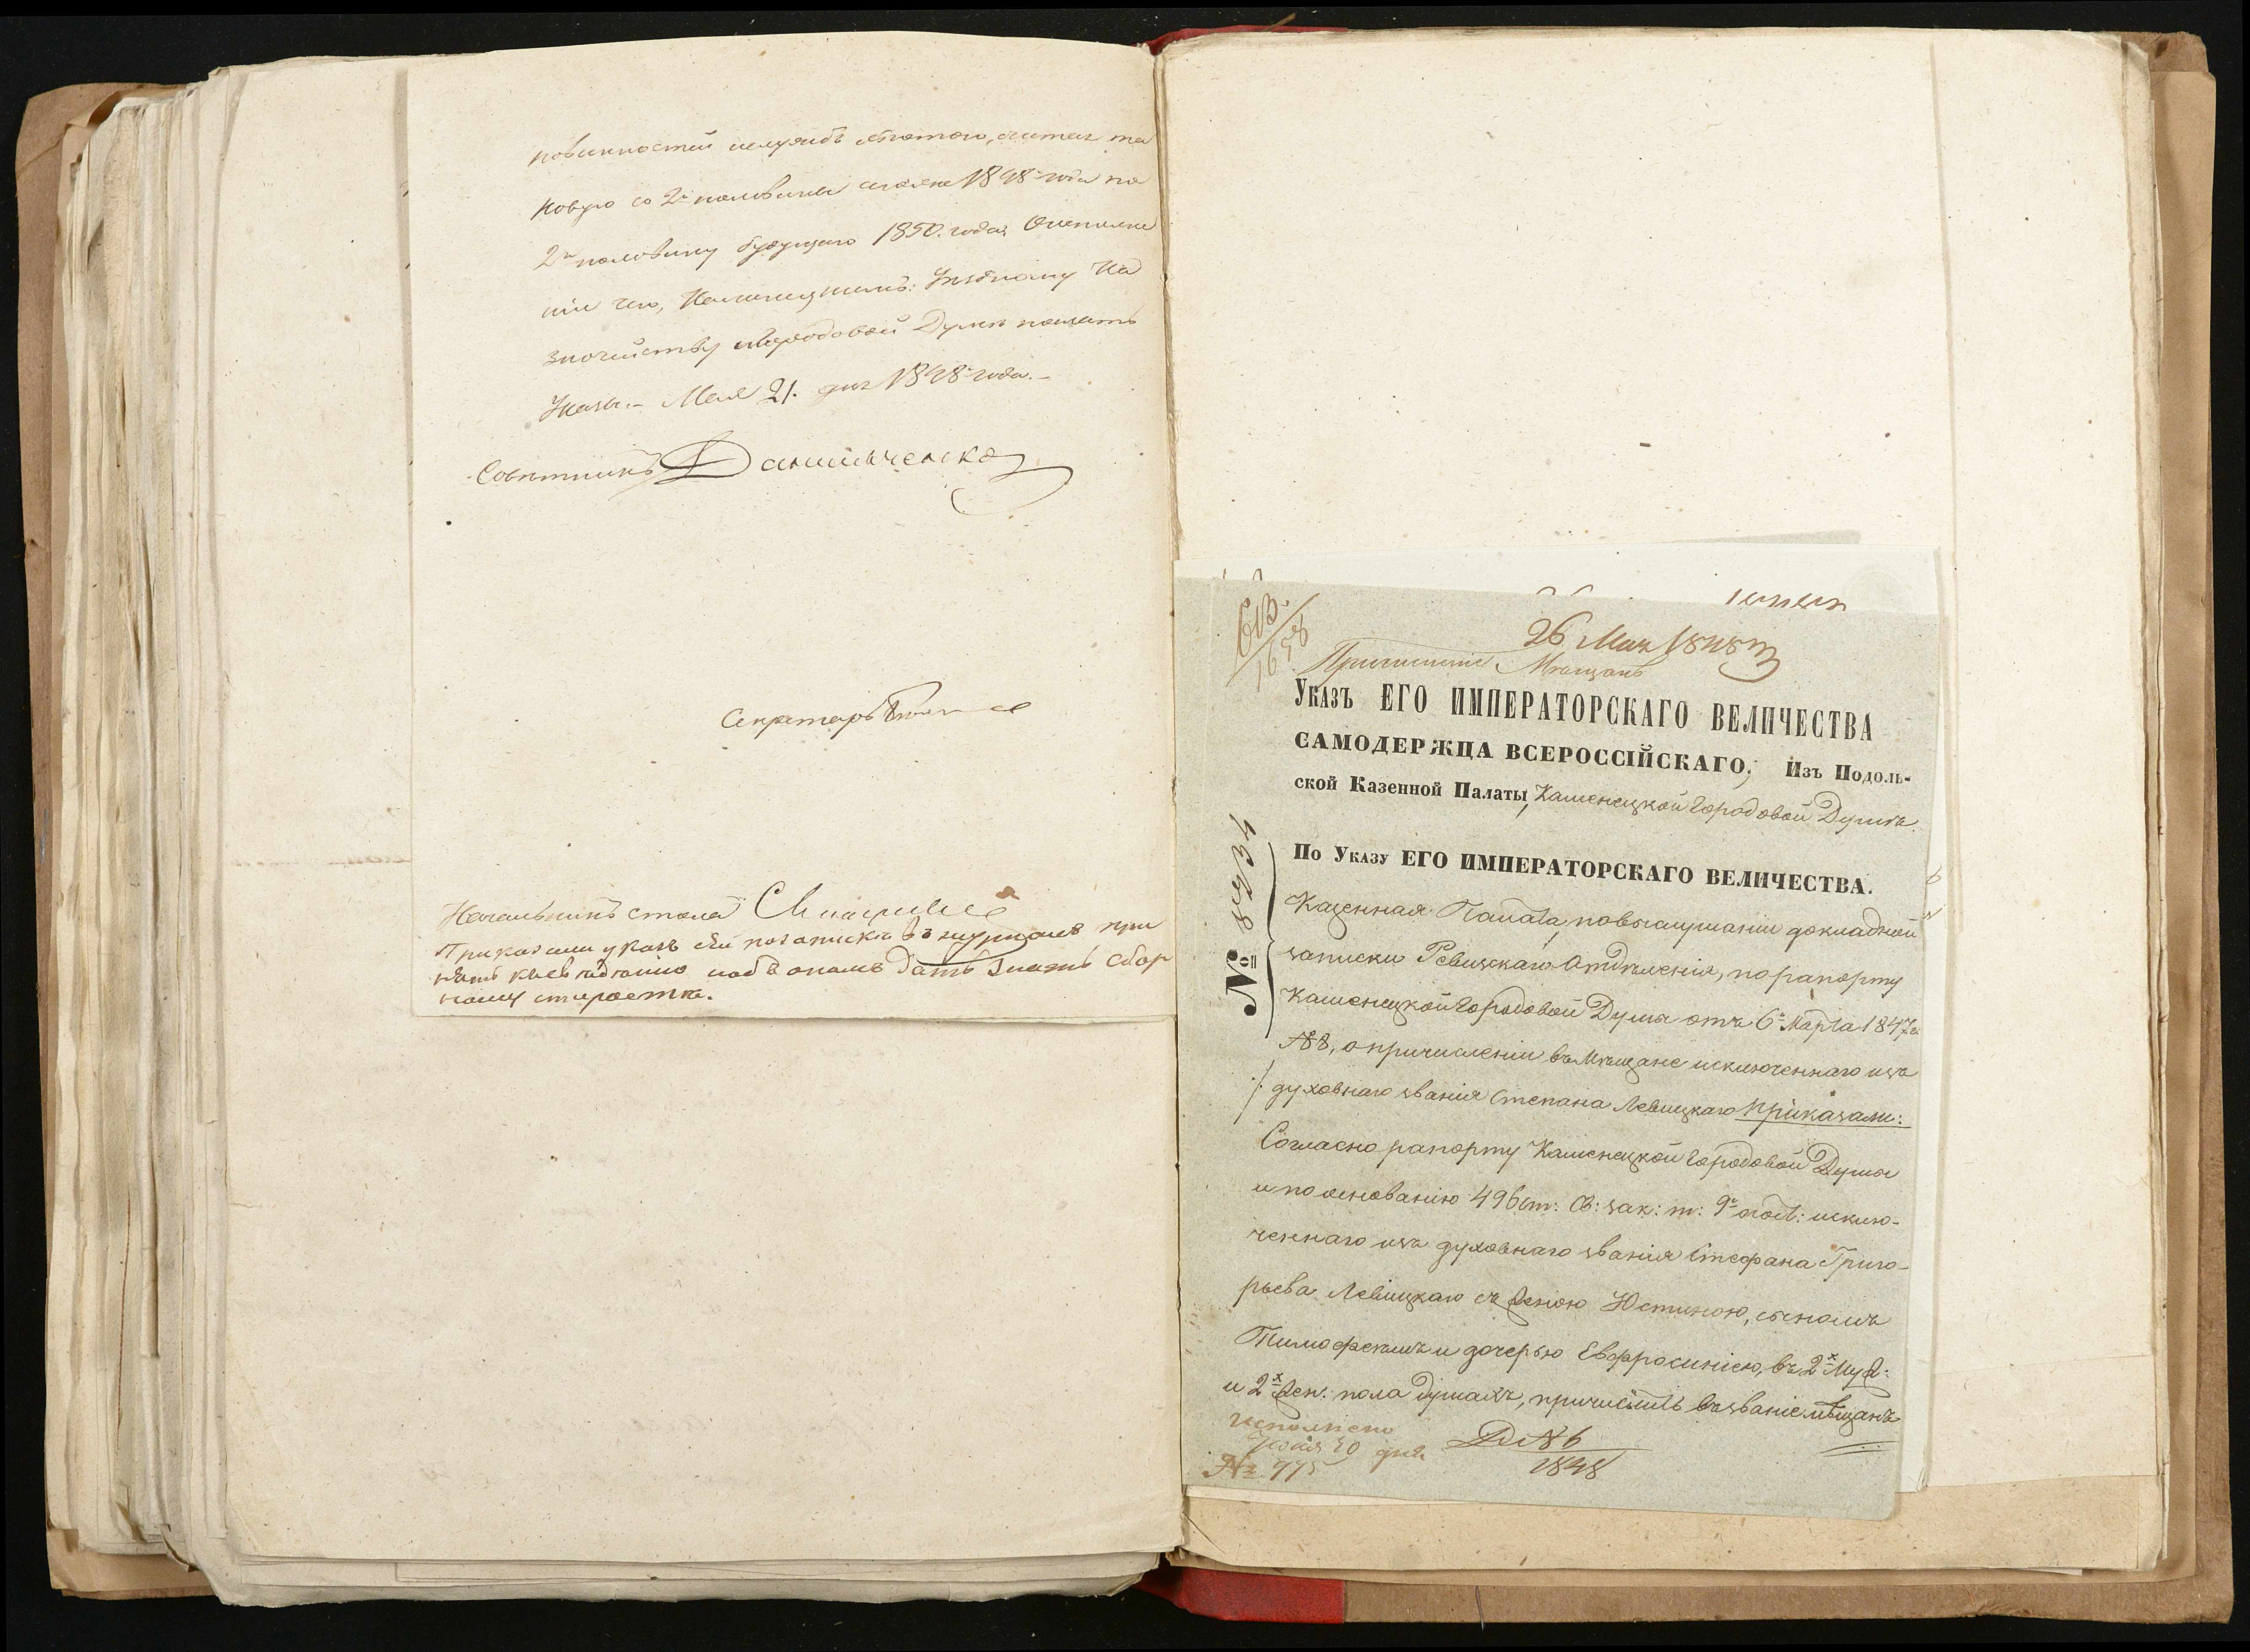 повинностей
ковую со 2й половины сего 1848 года по
2ю половину будущаго 1850. года; О исполне
ніи чего, Каменецкимъ: Уѣздному Ка
значейству и Городовой Думѣ послать
Указы. – Мая 21. дня 1848 года. –
Совѣтникъ Данильченко
Секретарь
Начальникъ стола
Приказали указъ сей по запискѣ въ журналъ при
нять къ свѣдѣнію и объ ономъ дать знать сбор
ному старостѣ.
613.
1658
26 Мая 1848
Причисленіе Мѣщанъ
Указъ ЕГО ИМПЕРАТОРСКАГО ВЕЛИЧЕСТВА
САМОДЕРЖЦА ВСЕРОССІЙСКАГО, Изъ Подоль-
ской Казенной Палаты, Каменецкой Городовой Думѣ.
По Указу ЕГО ИМПЕРАТОРСКАГО ВЕЛИЧЕСТВА.
№
Казенная Палата, по выслушаніи докладной
записки Ревизскаго Отдѣленія, по рапорту
Каменецкой Городовой Думы отъ 6го Марта 1847 г:
№ 8, о причисленіи въ Мѣщане исключеннаго изъ
духовнаго званія Степана Левицкаго приказали:
Согласно рапорту Каменецкой Городовой Думы
и по основанію 496 ст: Св: зак: т: 9го о сост: исклю-
ченнаго изъ духовнаго званія Стефана Григо-
рьева Левицкаго съ женою Юстиною, сыномъ
Тимофеемъ и дочерью Евфросиніею, въ 2х Муж:
и 2х жен: пола душахъ, причислить въ званіе мѣщанъ
Исполнено
Іюня 30 дня
№ 975
Д № 6
1848